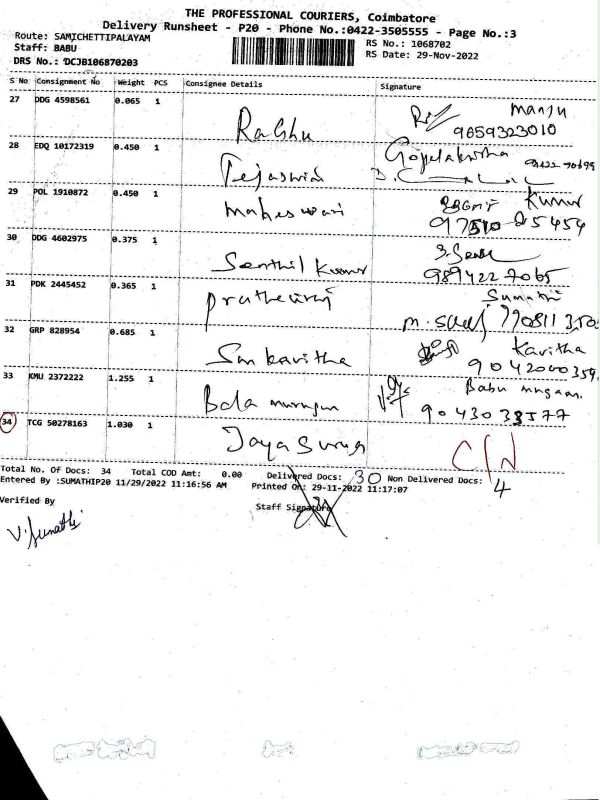 THE PROFESSIONAL COURIERS, Coimbatore
Delivery Runsheet - P20 - Phone No.:0422-3505555 - Page No.:3
Route: SAMICHETTIPALAYAM
Staff: BABU
DRS No.: DCJB106870203
RS No.: 1068702
RS Date: 29-Nov-2022
S No Consignment No Weight PCS Consignee Details Signature
27 DDG 4598561 0.065 1 Raghu Manju
9659323010
28 EDQ 10172319 0.450 1 Tejaswini Gopalakrishna
29 POL 1910872 0.450 1 Maheswari Kumar
30 DDG 4602975 0.375 1 Senthil Kumar
9894227065
31 PDK 2445452 0.365 1 Sumathi
32 GRP 828954 0.685 1 Smkavitha Kavitha
33 KMU 2372222 1.255 1 Bala murugan
34 TCG 50278163 1.030 1 Jaya Surya
Total No. Of Docs: 34 Total COD Amt: 0.00 Delivered Docs: 30 Non Delivered Docs: 4
Entered By :SUMATHIP20 11/29/2022 11:16:56 AM Printed On: 29-11-2022 11:17:07
Staff Signature
Verified By
V. Sumathi